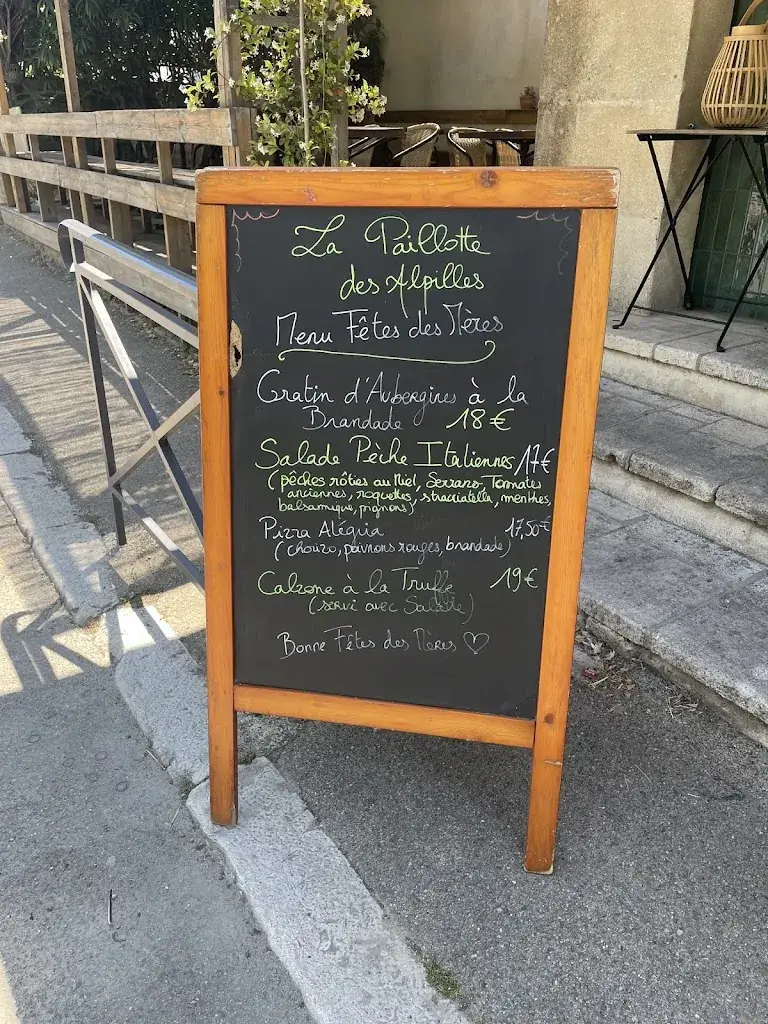 La Paillotte
des Alpilles
Menu Fêtes des Mères
Gratin d'Aubergines à la
Brandade 18€
Salade Pêche Italiennes 17€
(pêches rôties au Miel, Serrano, Tomates
anciennes, roquettes, straciatella, menthes,
balsamique, pignons)
Pizza Alégria 17,50€
(chorizo, poivrons rouges, brandade)
Calzone à la Truffe 19€
(servi avec Salade)
Bonne Fêtes des Mères ♡